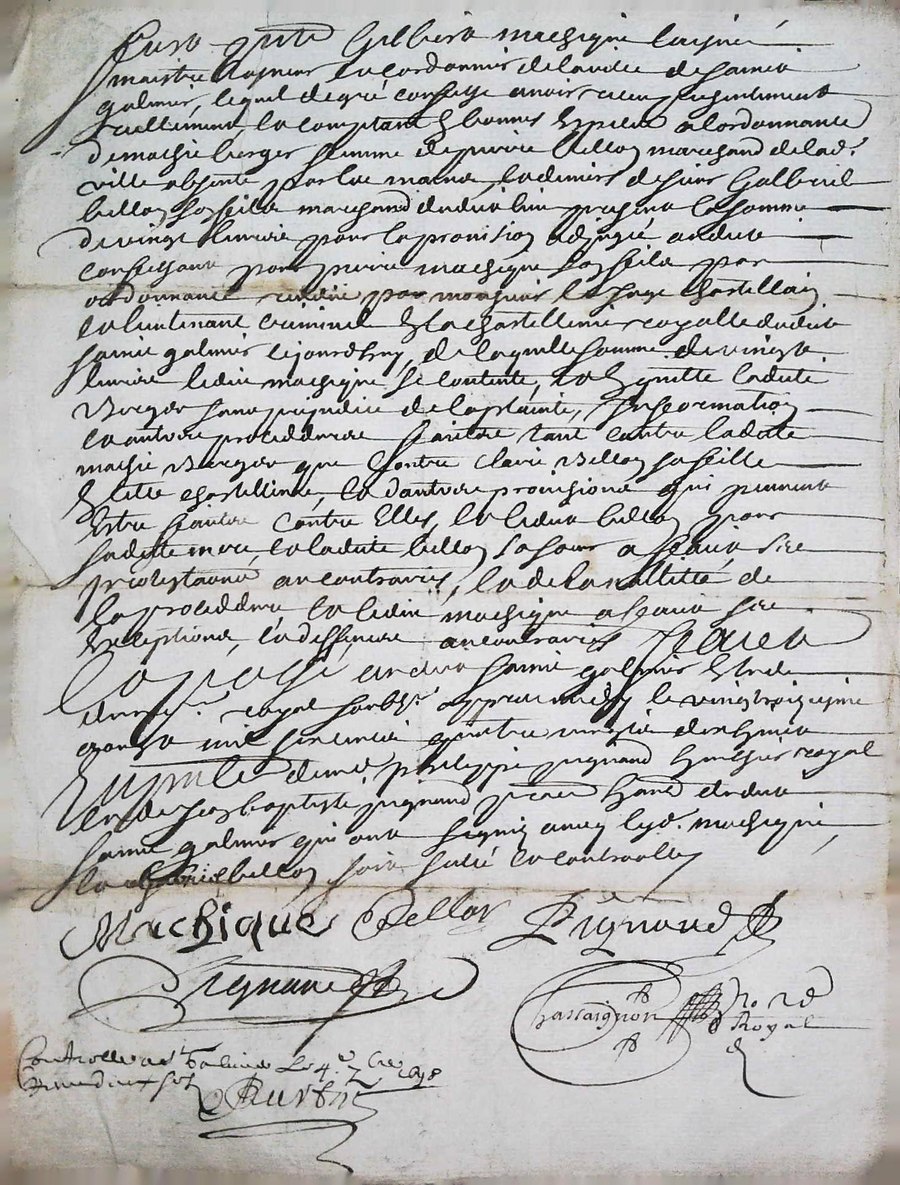 Fust present Gilbert machique laisné
maistre tanneur et cordonnier de la ville de sainct
galmier, lequel de gré confesse avoir receu presentement
reellement et comptant en bonnes especes a lordonnance
de mathie berger femme de pierre bellon marchand de lad.
ville absente par les mains et deniers de sieur Gabriel
bellon son fils marchand dudict lieu present la somme
de vingt livres pour la provision adjugée audict
confessant pour pierre machique son fils par
ordonnance rendue par monsieur le juge chastellain
et lieutenant criminel en la chastellenie royalle dudict
sainct galmier cejourdhuy, de laquelle somme de vingt
livres ledict machique se contente, et en quitte ladite
Berger sans prejudice de la plainte, Information
et autres proceddures faictes tant contre ladite
mathie Berger que contre claire Bellon sa fille
en cette chastellenie, et dautres provisions qui peuvent
estre faictes contre Elles, et ledict bellon pour
sadite mere, et ladite bellon sa soeur a faict ses
protestations au contraires, et de la nullitté de
la proceddure et ledict machique a faict ses
exceptions, et deffences au contraires
faict et passé audict sainct galmier Estude
du no.re royal soubz.é appres midy le vingttroizieme
aoust mil six cents quatre vingts dixhuict
En presence de me philippe pignard huissier royal
et de jean baptiste pignard pratt. habit. dudict
sainct galmier qui ont signé avec lesd. machique,
et Gabriel bellon soit scellé et controllé
Machique Bellon Pignard
Pignard
Chassaignon no.re
Royal
Controllé a st Galmier Le 4e 7bre 1698